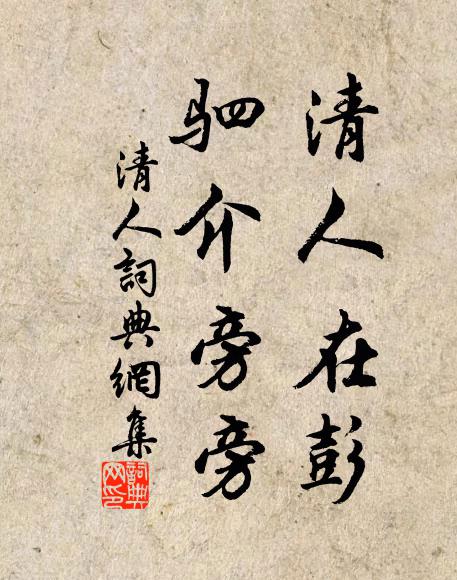 清人在彭
驷介旁旁
清人詞典網集
詞典网印